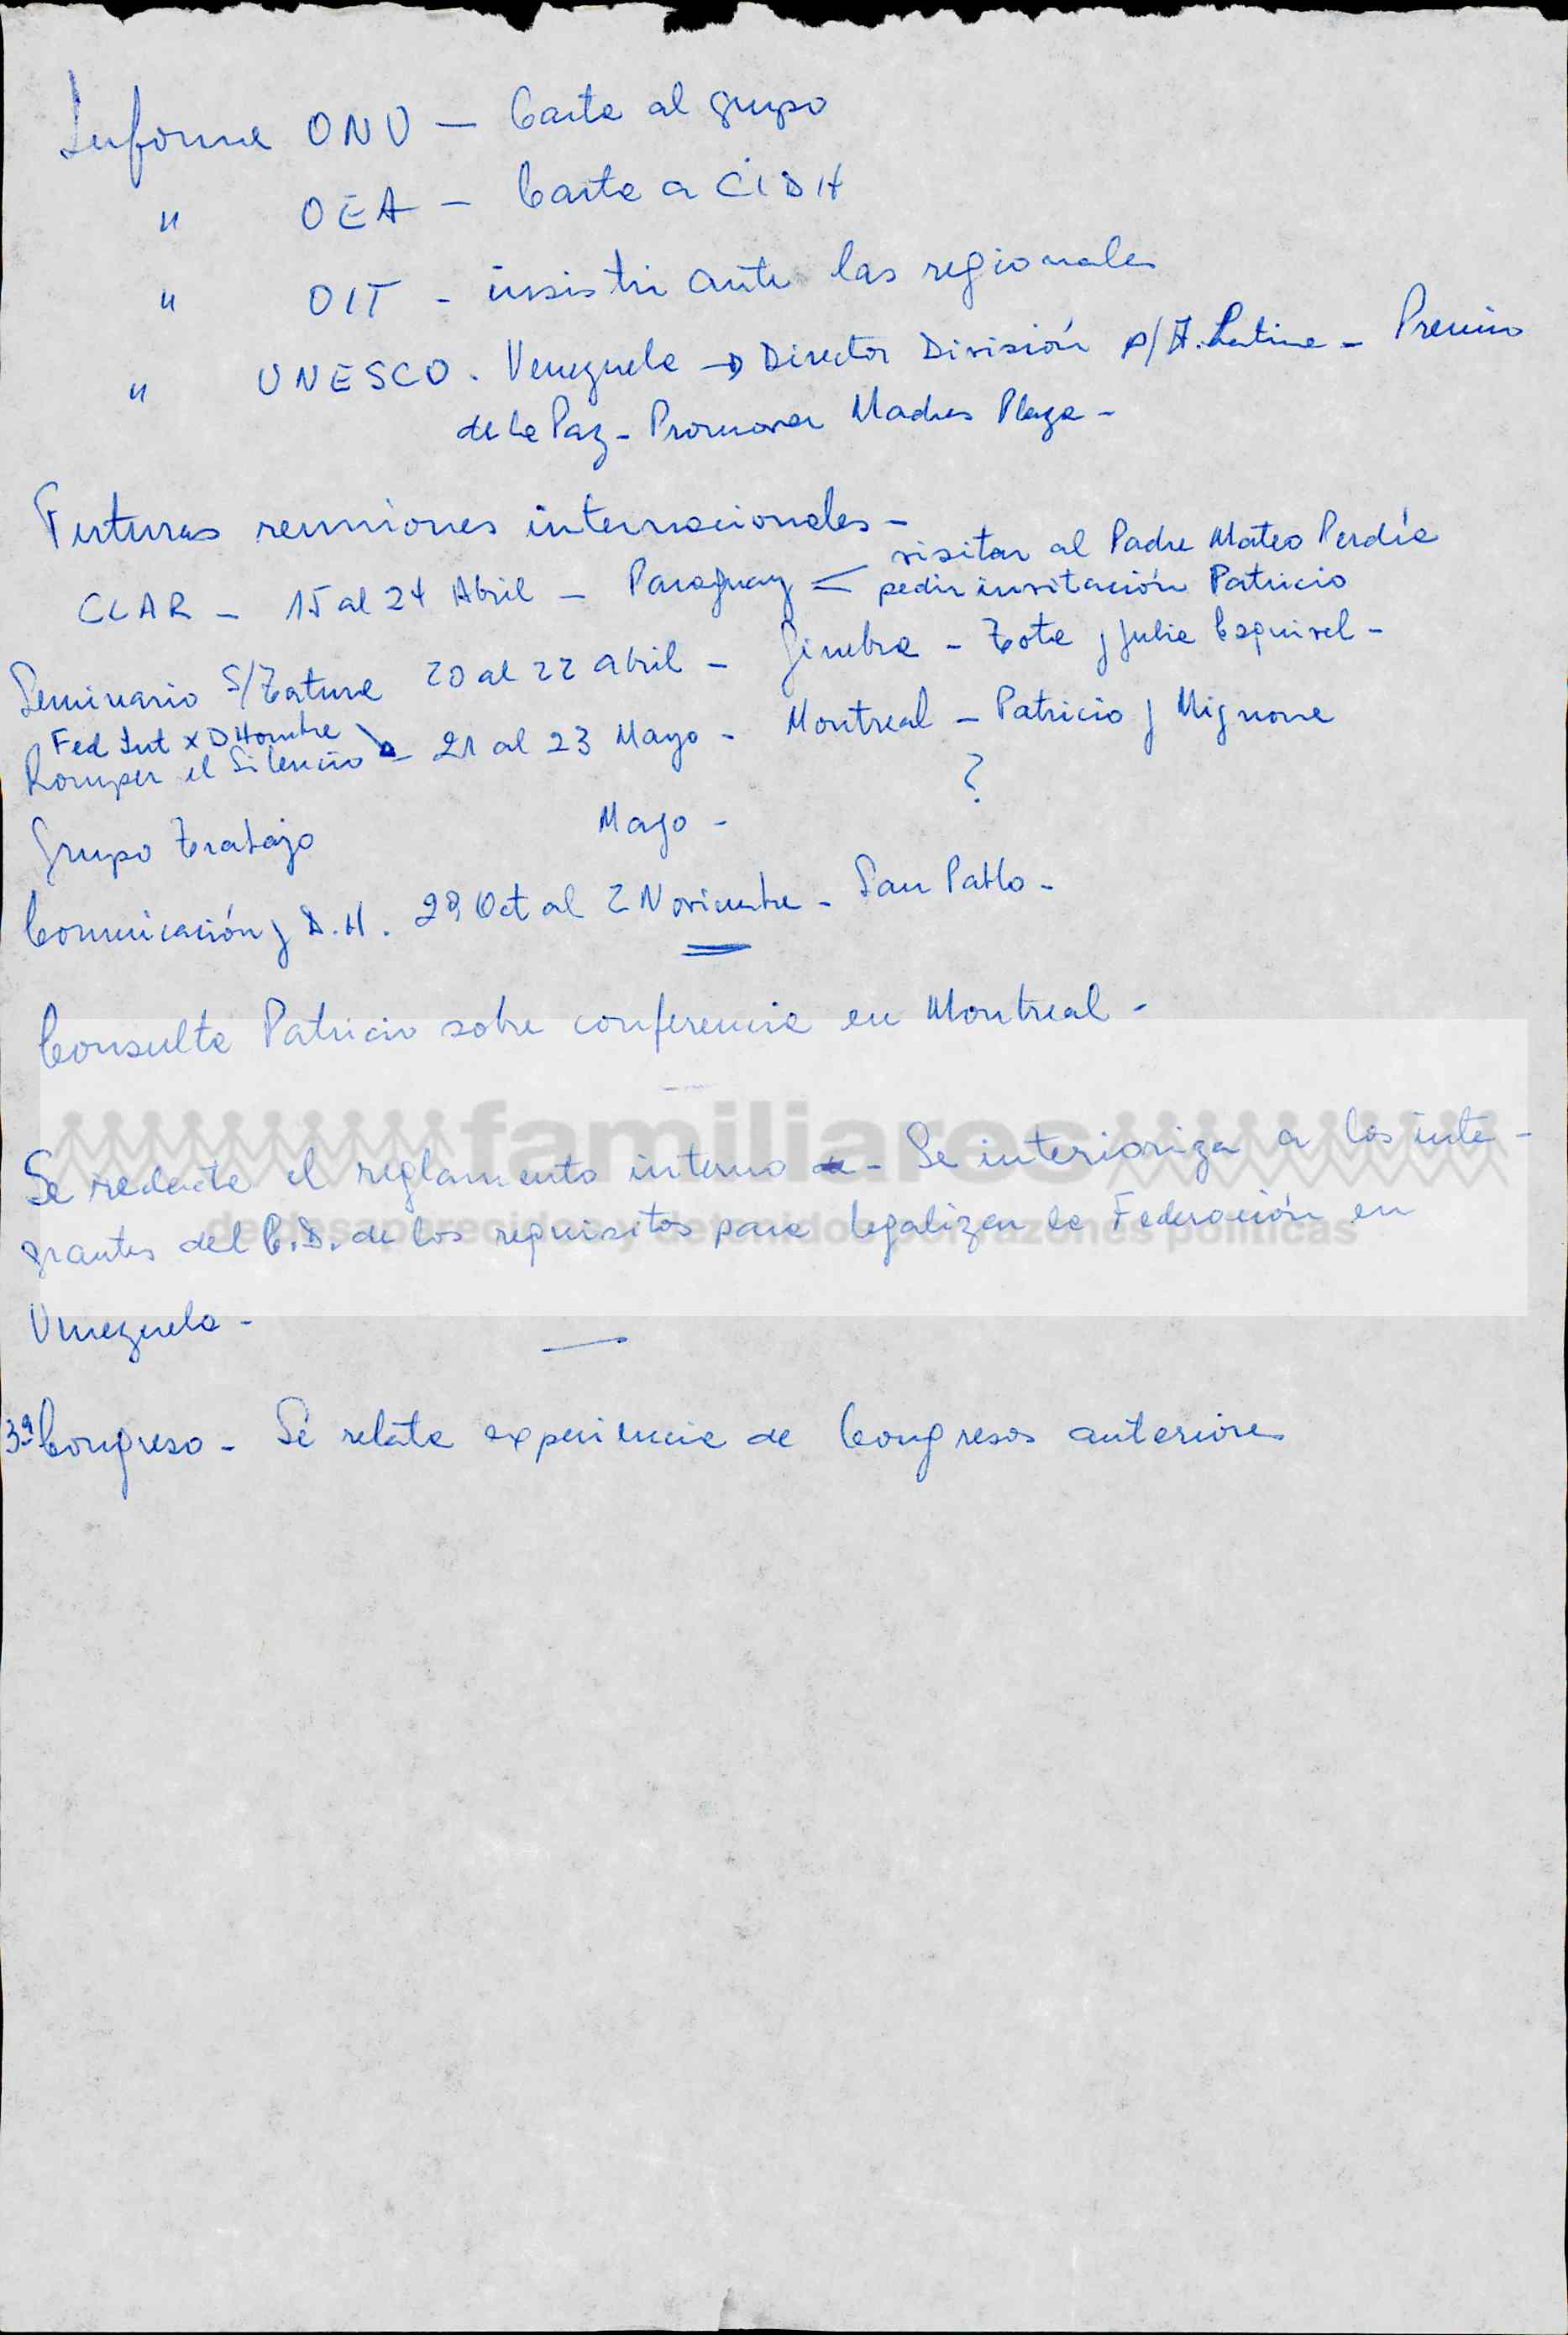 Informe ONU — Carta al grupo
" OEA — Carta a CIDH
" OIT - insistir ante las regionales
" UNESCO. Venezuela → Director División p/A. Latina - Premio
de la Paz - Promover Madres Plaza -
Futuras reuniones internacionales -
visitar al Padre Mateo Perdía
CLAR - 15 al 24 Abril - Paraguay < pedir invitación Patricio
Seminario s/Tortura 20 al 22 abril - Ginebra - Tota y Julia Esquivel -
Fed Int x D Hombre
Romper el Silencio - 21 al 23 Mayo - Montreal - Patricio y Mignone
?
Grupo Trabajo Mayo -
Comunicación y D.H. 29 Oct al 2 Noviembre - San Pablo -
Consulta Patricio sobre conferencia en Montreal -
familiares
Se redacta el reglamento interno - Se interioriza a los inte-
de desaparecidos y detenidos por razones políticas
grantes del C.D. de los requisitos para legalizar la Federación en
Venezuela -
3ª Congreso - Se relata experiencia de Congresos anteriores